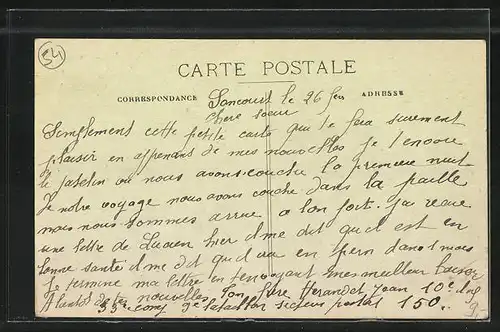 54
CARTE POSTALE
CORRESPONDANCE Sancourt le 26 fev ADRESSE
chere soeur
Simplement cette petite carte qui te fera surement
plaisir en apprenans de mes nouvelles je t'envoie
le patelin ou nous avons couche la premiere nuit
de notre voyage nous avons couche dans la paille
mais nous sommes arrive a bon port. j'ai recue
une lettre de Lucien hier il me dit quil est en
bonne santé il me dit quil va en perm dans 1 mois
Je termine ma lettre en tenvoyant mes meilleur baiser
A bientot de tes nouvelles Ton frere Jean 10e
33e comp 9e bataillon secteur postal 150.